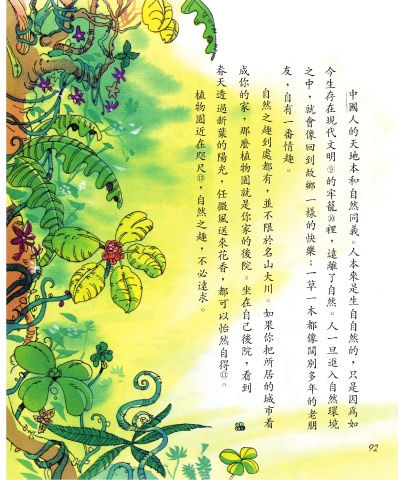 中國人的天地本和自然同義。人本來是生自自然的，只是因為如
今生存在現代文明⑨的牢籠⑩裡，遠離了自然。人一旦進入自然環境
之中，就會像回到故鄉一樣的快樂；一草一木都像闊別多年的老朋
友，自有一番情趣。
自然之趣到處都有，並不限於名山大川。如果你把所居的城市看
成你的家，那麼植物園就是你家的後院。坐在自己後院，看到
春天透過新葉的陽光，任微風送來花香，都可以怡然自得⑪。
植物園近在咫尺⑫，自然之趣，不必遠求。
92